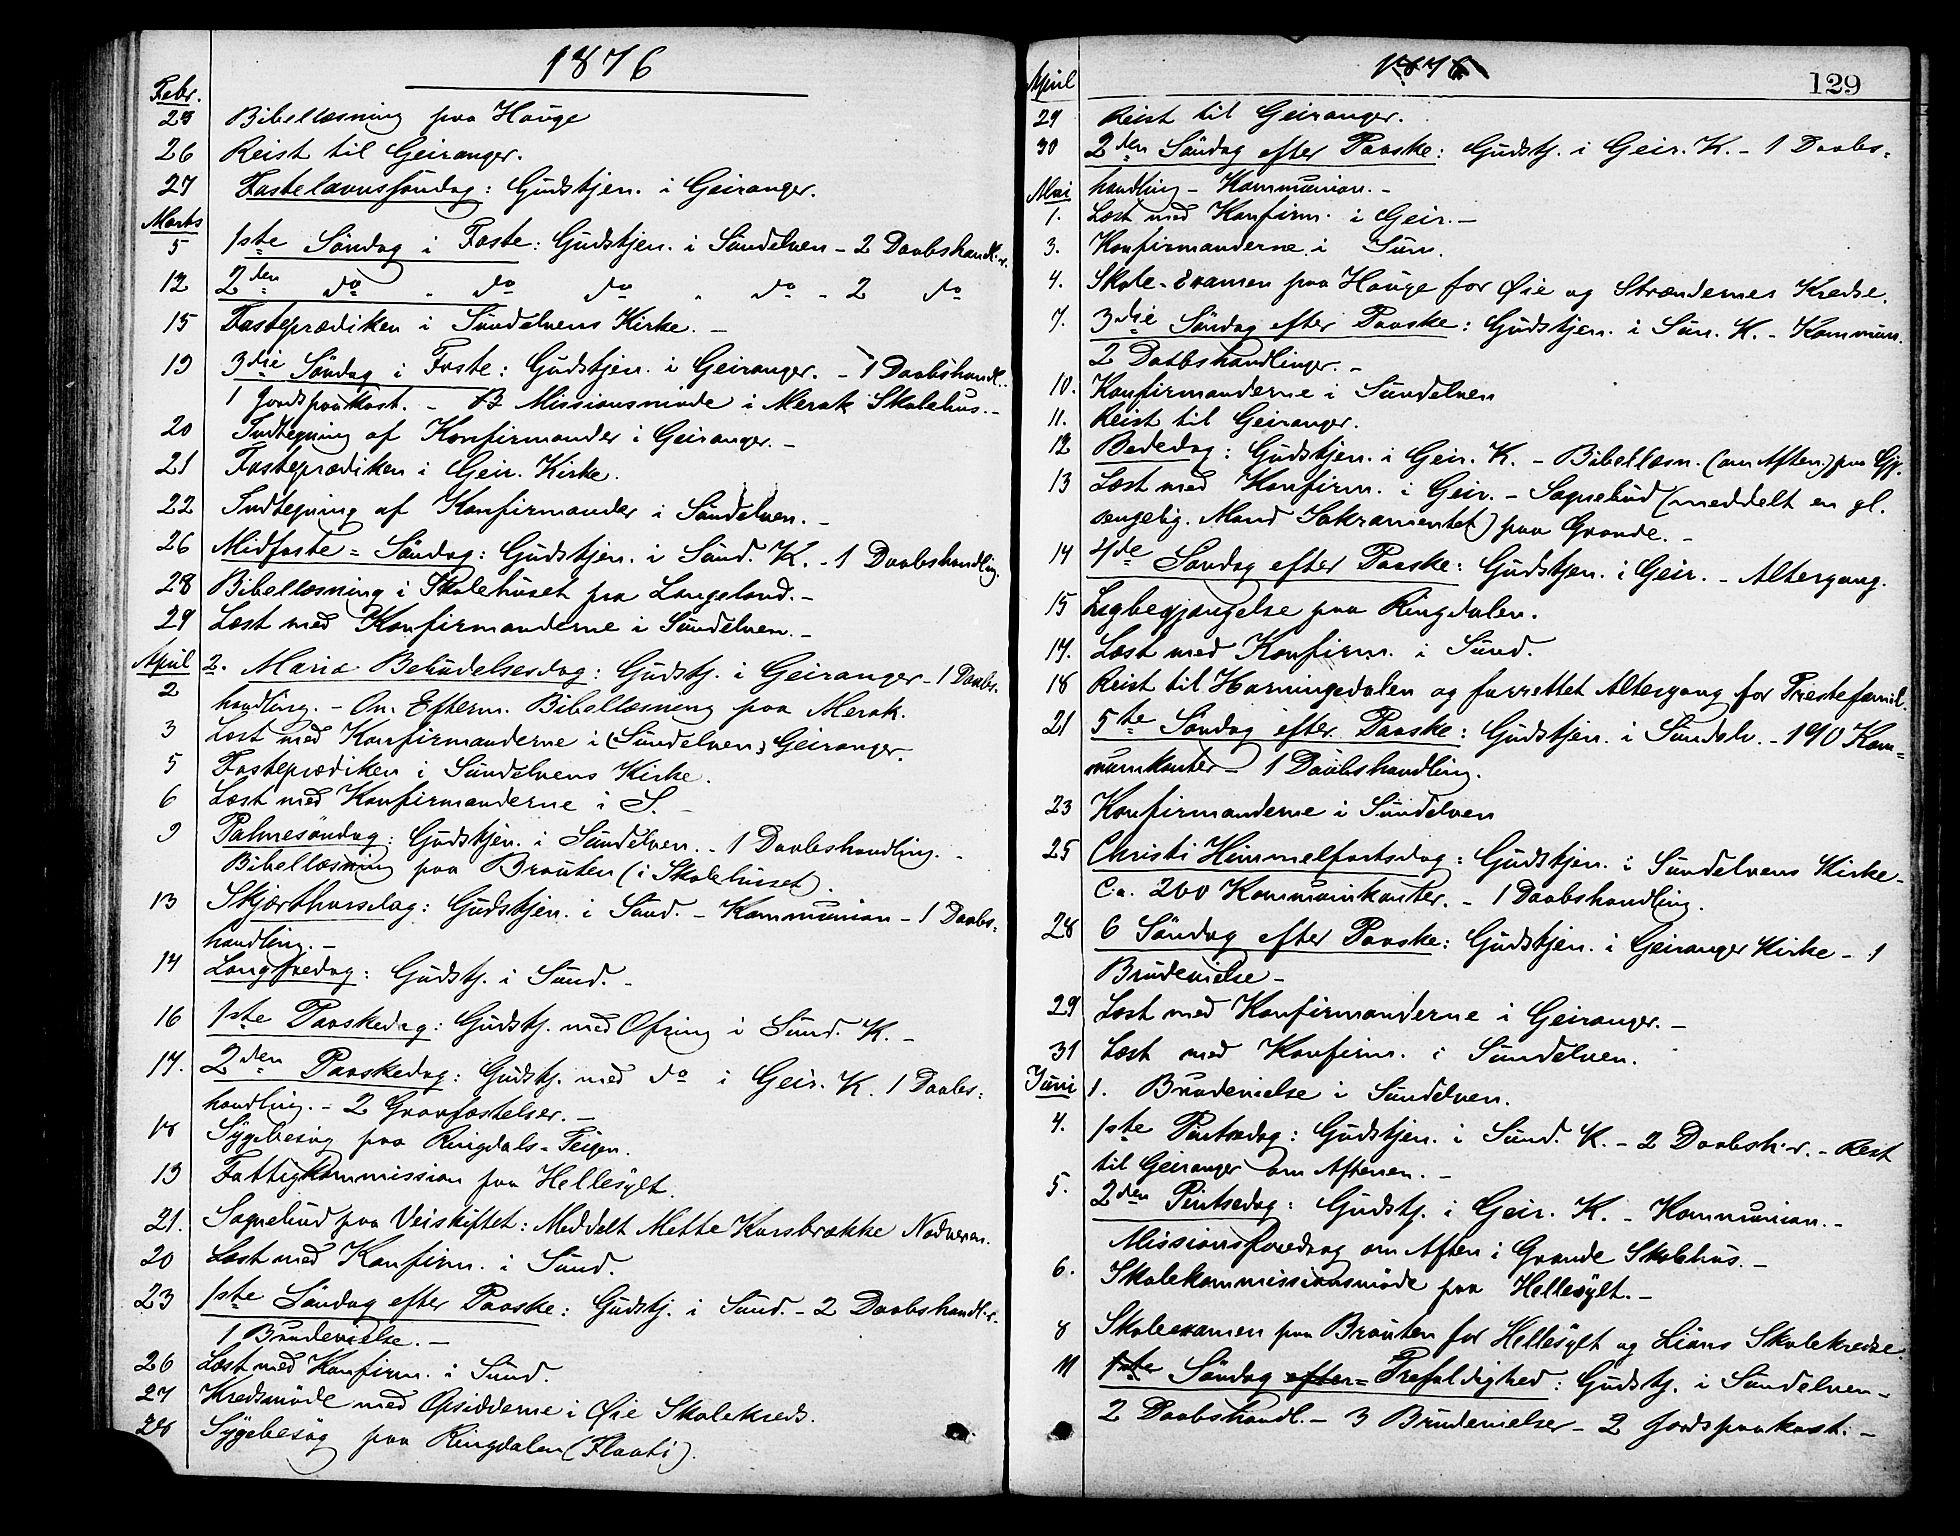 1876
Febr.
25 Bibellæsning paa Hauge
26 Reist til Geiranger.
27 Fastelavnssöndag: Gudstjen. i Geiranger.
Marts
5 1ste Söndag i Faste: Gudstjen. i Sundelven - 2 Daabshandl.r.
12 2den do " do do " do - 2 do
15 Fasteprædiken i Sundelvens Kirke. -
19 3die Söndag i Faste: Gudstjen. i Geiranger. - 1 Daabshandl.
1 Jordspaakast. - Missionsmöde i Merak Skolehus. -
20 Indtegning af Konfirmander i Geiranger. -
21 Fasteprædiken i Geir. Kirke.
22 Indtegning af Konfirmander i Sundelven. -
26 Midfaste = Söndag: Gudstjen. i Sund. K. - 1 Daabshandling.
28 Bibellæsning i Skolehuset paa Langeland. -
29 Læst med Konfirmanderne i Sundelven. -
April 2. Mariæ Bebudelsesdag: Gudstj. i Geiranger - 1 Daabs-
2 handling. - Om Efterm. Bibellæsning paa Merak.
3 Læst med Konfirmanderne i (Sundelven) Geiranger.
5 Fasteprædiken i Sundelvens Kirke.
6 Læst med Konfirmanderne i S. -
9 Palmesöndag: Gudstjen. i Sundelven. - 1 Daabshandling. -
Bibellæsning paa Brauten (i Skolehuset).
13 Skjærthorsdag: Gudstjen. i Sund. - Kommunion - 1 Daabs-
handling. -
14 Langfredag: Gudstj. i Sund. -
16 1ste Paaskedag: Gudstj. med Ofring i Sund. K. -
17. 2den Paaskedag: Gudstj. med do i Geir. K. 1 Daabs-
handling. - 2 Gravfæstelser. -
18 Sygebesög paa Ringdals-Teigen.
19 Fattigkommission paa Hellesylt.
21. Sognebud paa Veiskiftet: Meddelt Mette Korsbrække Nadveren.
20 Læst med Konfirm. i Sund.
23 1ste Söndag efter Paaske: Gudstj. i Sund. - 2 Daabshandl.r.
1 Brudevielse. -
26 Læst med Konfirm. i Sund.
27 Kredsmöde med Opsidderne i Øie Skolekreds.
28 Sygebesög paa Ringdalen (Flaati).
1876
129
April
29 Reist til Geiranger.
30 2den Söndag efter Paaske: Gudstj. i Geir. K. - 1 Daabs-
handling - Kommunion. -
Mai
1. Læst med Konfirm. i Geir. -
3. Konfirmanderne i Sun.
4. Skole-Examen paa Hauge for Øie og Strandernes Kredse.
7. 3die Söndag efter Paaske: Gudstjen. i Sun. K. - Kommun.
2 Daabshandlinger. -
10. Konfirmanderne i Sundelven
11. Reist til Geiranger.
12 Bededag: Gudstjen. i Geir. K. - Bibellæsn. (om Aften.) paa Gj.
13 Læst med Konfirm. i Geir. - Sognebud (meddelt en gl.
sengelig. Mand Sakramentet) paa Grande. -
14 4de Söndag efter Paaske: Gudstjen. i Geir. - Altergang.
15 Ligbegjængelse paa Ringdalen.
17. Læst med Konfirm. i Sund.
18 Reist til Horningdalen og forrettet Altergang for Præstefamil.
21 5te Söndag efter Paaske: Gudstjen. i Sundelv. - 190 Kom-
munikanter - 1 Daabshandling.
23 Konfirmanderne i Sundelven
25 Christi Himmelfartsdag: Gudstjen. i Sundelvens Kirke -
C.a. 200 Kommunikanter. - 1 Daabshandling.
28 6 Söndag efter Paaske: Gudstjen. i Geiranger Kirke - 1
Brudevielse -
29 Læst med Konfirmanderne i Geiranger. -
31 Læst med Konfirm. i Sundelven.
Juni 1. Brudevielse i Sundelven.
4. 1ste Pintsedag: Gudstjen. i Sund. K. - 2 Daabsh.r. - Reist
til Geiranger om Aftenen. -
5. 2den Pintsedag: Gudstj. i Geir. K. - Kommunion. -
Missionsforedrag om Aften i Grande Skolehus. -
6. Skolekommissionsmöde paa Hellesylt. -
8 Skoleexamen paa Brauten for Hellesylt og Lians Skolekredse.
11 1ste Söndag efter= Trefoldighed: Gudstj. i Sundelven -
2 Daabshandl. - 3 Brudevielser - 2 Jordspaakast. -